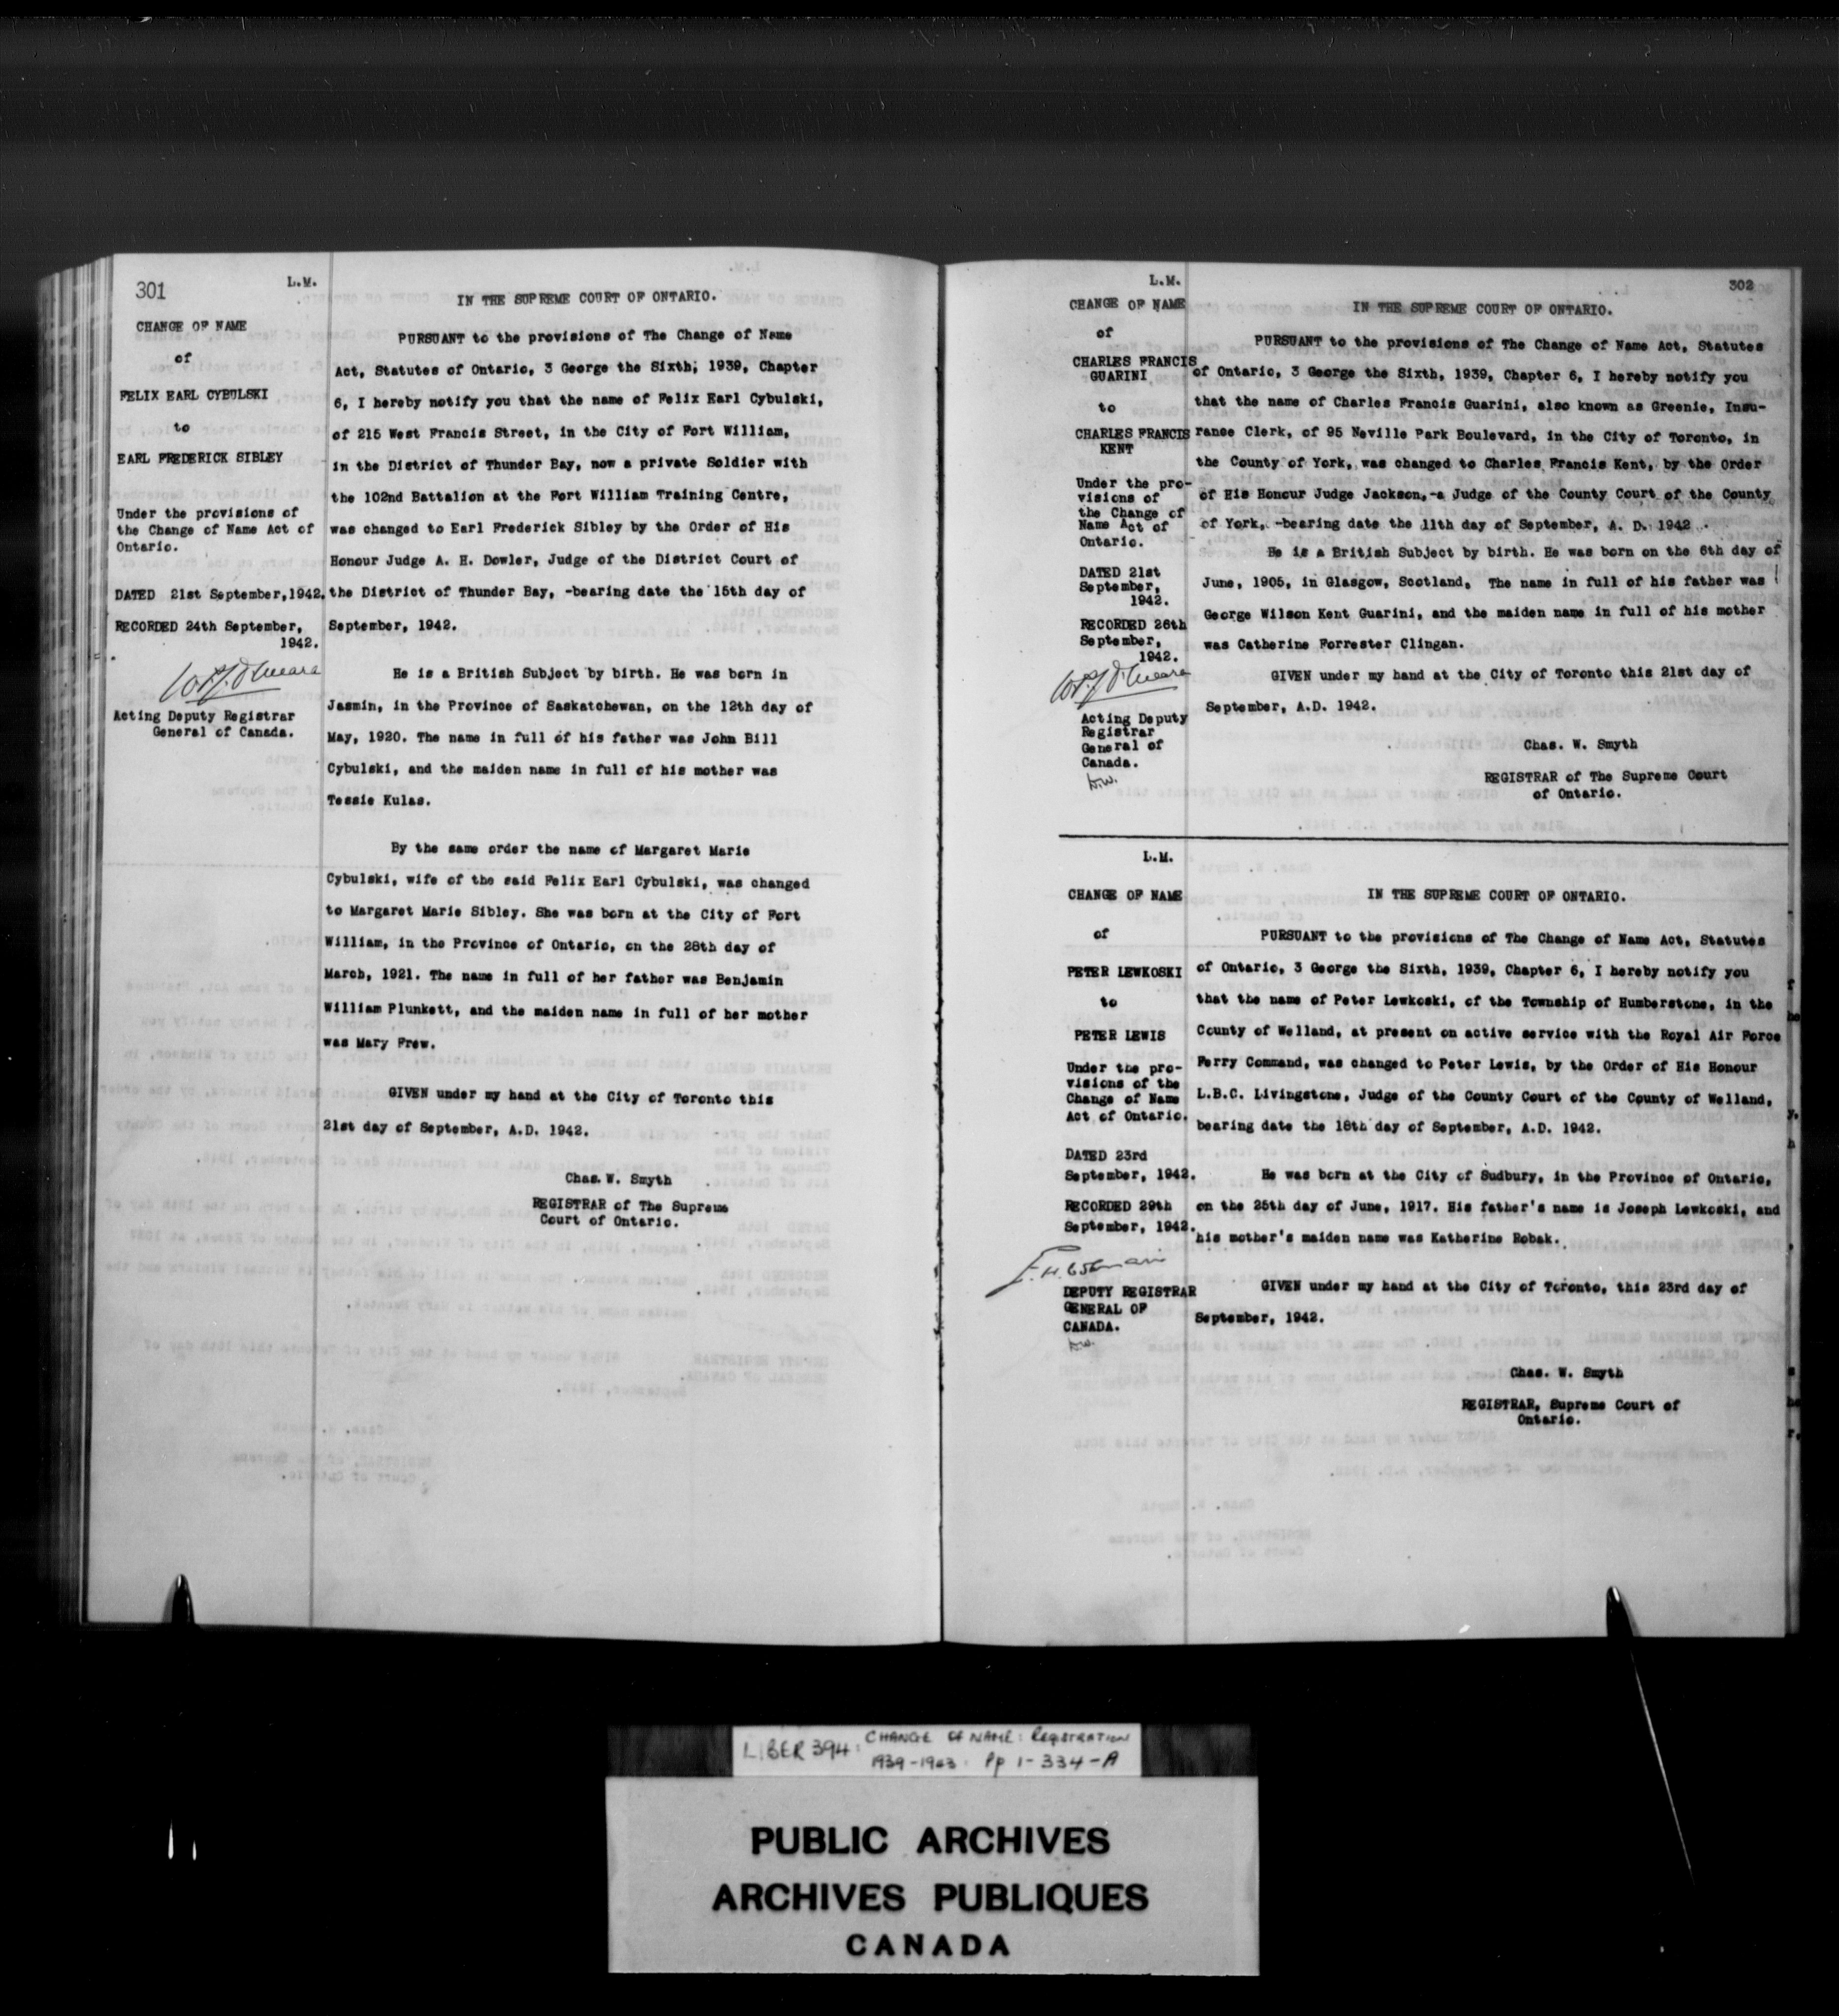 301
L.M.
CHANGE OF NAME
of
FELIX EARL CYBULSKI
to
EARL FREDERICK SIBLEY
Under the provisions of
the Change of Name Act of
Ontario.
DATED 21st September,1942.
RECORDED 24th September,
1942.
Acting Deputy Registrar
General of Canada.
IN THE SUPREME COURT OF ONTARIO.
PURSUANT to the provisions of The Change of Name
Act, Statutes of Ontario, 3 George the Sixth, 1939, Chapter
6, I hereby notify you that the name of Felix Earl Cybulski,
of 215 West Francis Street, in the City of Fort William,
in the District of Thunder Bay, now a private Soldier with
the 102nd Battalion at the Fort William Training Centre,
was changed to Earl Frederick Sibley by the Order of His
Honour Judge A. H. Dowler, Judge of the District Court of
the District of Thunder Bay, -bearing date the 15th day of
September, 1942.
He is a British Subject by birth. He was born in
Jasmin, in the Province of Saskatchewan, on the 12th day of
May, 1920. The name in full of his father was John Bill
Cybulski, and the maiden name in full of his mother was
Tessie Kulas.
By the same order the name of Margaret Marie
Cybulski, wife of the said Felix Earl Cybulski, was changed
to Margaret Marie Sibley. She was born at the City of Fort
William, in the Province of Ontario, on the 28th day of
March, 1921. The name in full of her father was Benjamin
William Plunkett, and the maiden name in full of her mother
was Mary Frew.
GIVEN under my hand at the City of Toronto this
21st day of September, A.D. 1942.
Chas. W. Smyth
REGISTRAR of The Supreme
Court of Ontario.
302
L.M.
CHANGE OF NAME
of
CHARLES FRANCIS
GUARINI
to
CHARLES FRANCIS
KENT
Under the pro-
visions of
the Change of
Name Act of
Ontario.
DATED 21st
September,
1942.
RECORDED 26th
September,
1942.
Acting Deputy
Registrar
General of
Canada.
IN THE SUPREME COURT OF ONTARIO.
PURSUANT to the provisions of The Change of Name Act, Statutes
of Ontario, 3 George the Sixth, 1939, Chapter 6, I hereby notify you
that the name of Charles Francis Guarini, also known as Greenie, Insu-
rance Clerk, of 95 Neville Park Boulevard, in the City of Toronto, in
the County of York, was changed to Charles Francis Kent, by the Order
of His Honour Judge Jackson,-a Judge of the County Court of the County
of York, -bearing date the 11th day of September, A. D. 1942 .
He is a British Subject by birth. He was born on the 6th day of
June, 1905, in Glasgow, Scotland, The name in full of his father was
George Wilson Kent Guarini, and the maiden name in full of his mother
was Catherine Forrester Clingan.
GIVEN under my hand at the City of Toronto this 21st day of
September, A.D. 1942.
Chas. W. Smyth
REGISTRAR of The Supreme Court
of Ontario.
L.M.
CHANGE OF NAME
of
PETER LEWKOSKI
to
PETER LEWIS
Under the pro-
visions of the
Change of Name
Act of Ontario.
DATED 23rd
September, 1942.
RECORDED 29th
September, 1942.
DEPUTY REGISTRAR
GENERAL OF
CANADA.
IN THE SUPREME COURT OF ONTARIO.
PURSUANT to the provisions of The Change of Name Act, Statutes
of Ontario, 3 George the Sixth, 1939, Chapter 6, I hereby notify you
that the name of Peter Lewkoski, of the Township of Humberstone, in the
County of Welland, at present on active service with the Royal Air Force
Ferry Command, was changed to Peter Lewis, by the Order of His Honour
L.B.C. Livingstone, Judge of the County Court of the County of Welland,
bearing date the 18th day of September, A.D. 1942.
He was born at the City of Sudbury, in the Province of Ontario,
on the 25th day of June, 1917. His father's name is Joseph Lewkoski, and
his mother's maiden name was Katherine Robak.
GIVEN under my hand at the City of Toronto, this 23rd day of
September, 1942.
Chas. W. Smyth
REGISTRAR, Supreme Court of
Ontario.
LIBER 394: CHANGE OF NAME: Registration
Pp 1-334-A
PUBLIC ARCHIVES
ARCHIVES PUBLIQUES
CANADA